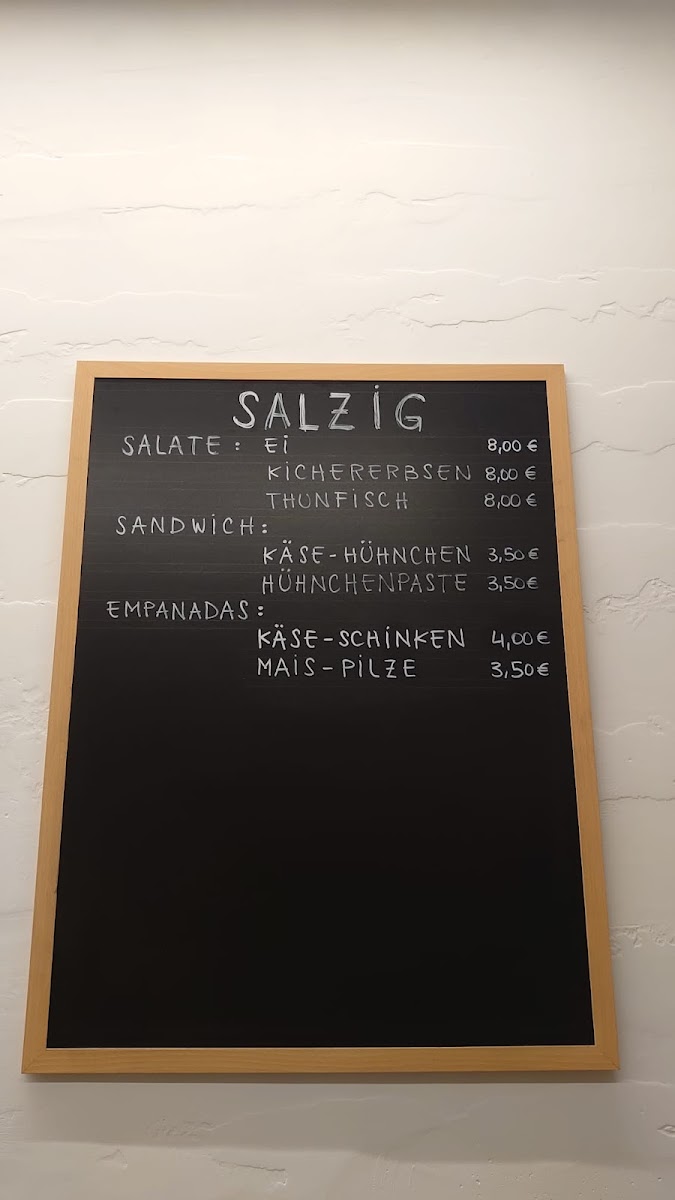 SALZIG
SALATE: Ei 8,00 €
KICHERERBSEN 8,00 €
THUNFISCH 8,00 €
SANDWICH:
KÄSE-HÜHNCHEN 3,50 €
HÜHNCHENPASTE 3,50 €
EMPANADAS:
KÄSE-SCHINKEN 4,00 €
MAIS-PILZE 3,50 €